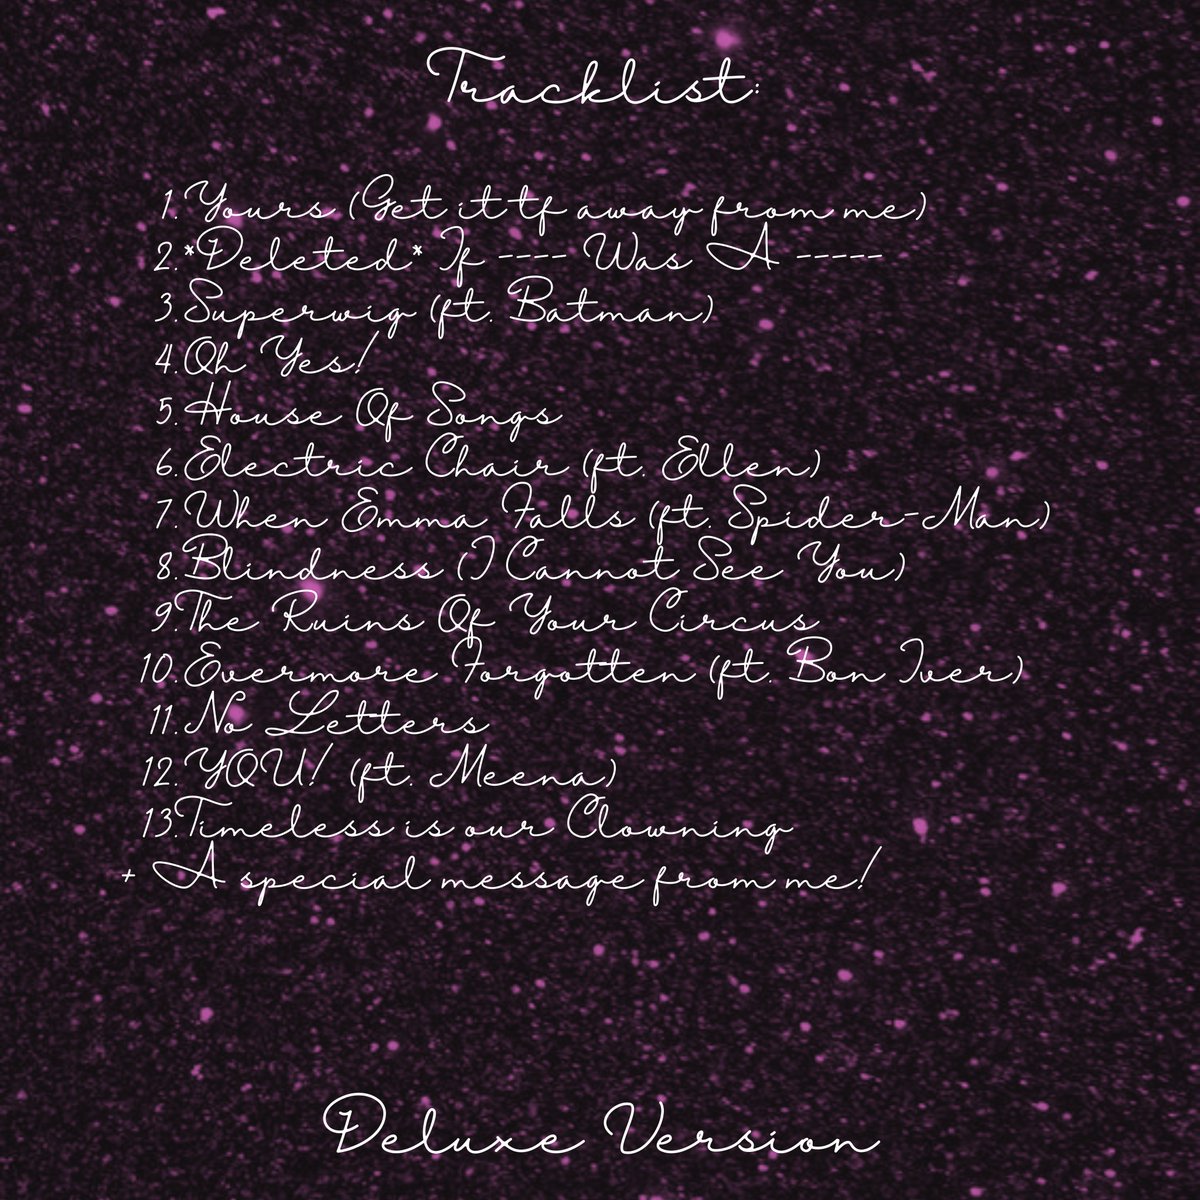 Tracklist:
1. Yours (Get it tf away from me)
2. *Deleted* If ---- Was A -----
3. Superwig (ft. Batman)
4. Oh Yes!
5. House Of Songs
6. Electric Chair (ft. Ellen)
7. When Emma Falls (ft. Spider-Man)
8. Blindness (I Cannot See You)
9. The Ruins Of Your Circus
10. Evermore Forgotten (ft. Bon Iver)
11. No Letters
12. YOU! (ft. Meena)
13. Timeless is our Clowning
+ A special message from me!
Deluxe Version